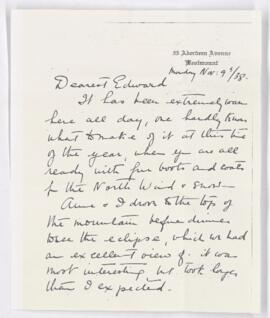 33 Aberdeen Avenue
Westmount
Monday Nov. 9th/38.
Dearest Edward
It has been extremely warm
here all day, one hardly knows
what to make of it at this time
of the year, when you are all
ready with fur boots and coats
for the North Wind & Snow
Anne & I drove to the top of
the mountain before dinner
to see the eclipse, which we had
an excellent view of. it was
most interesting but took longer
than I expected.